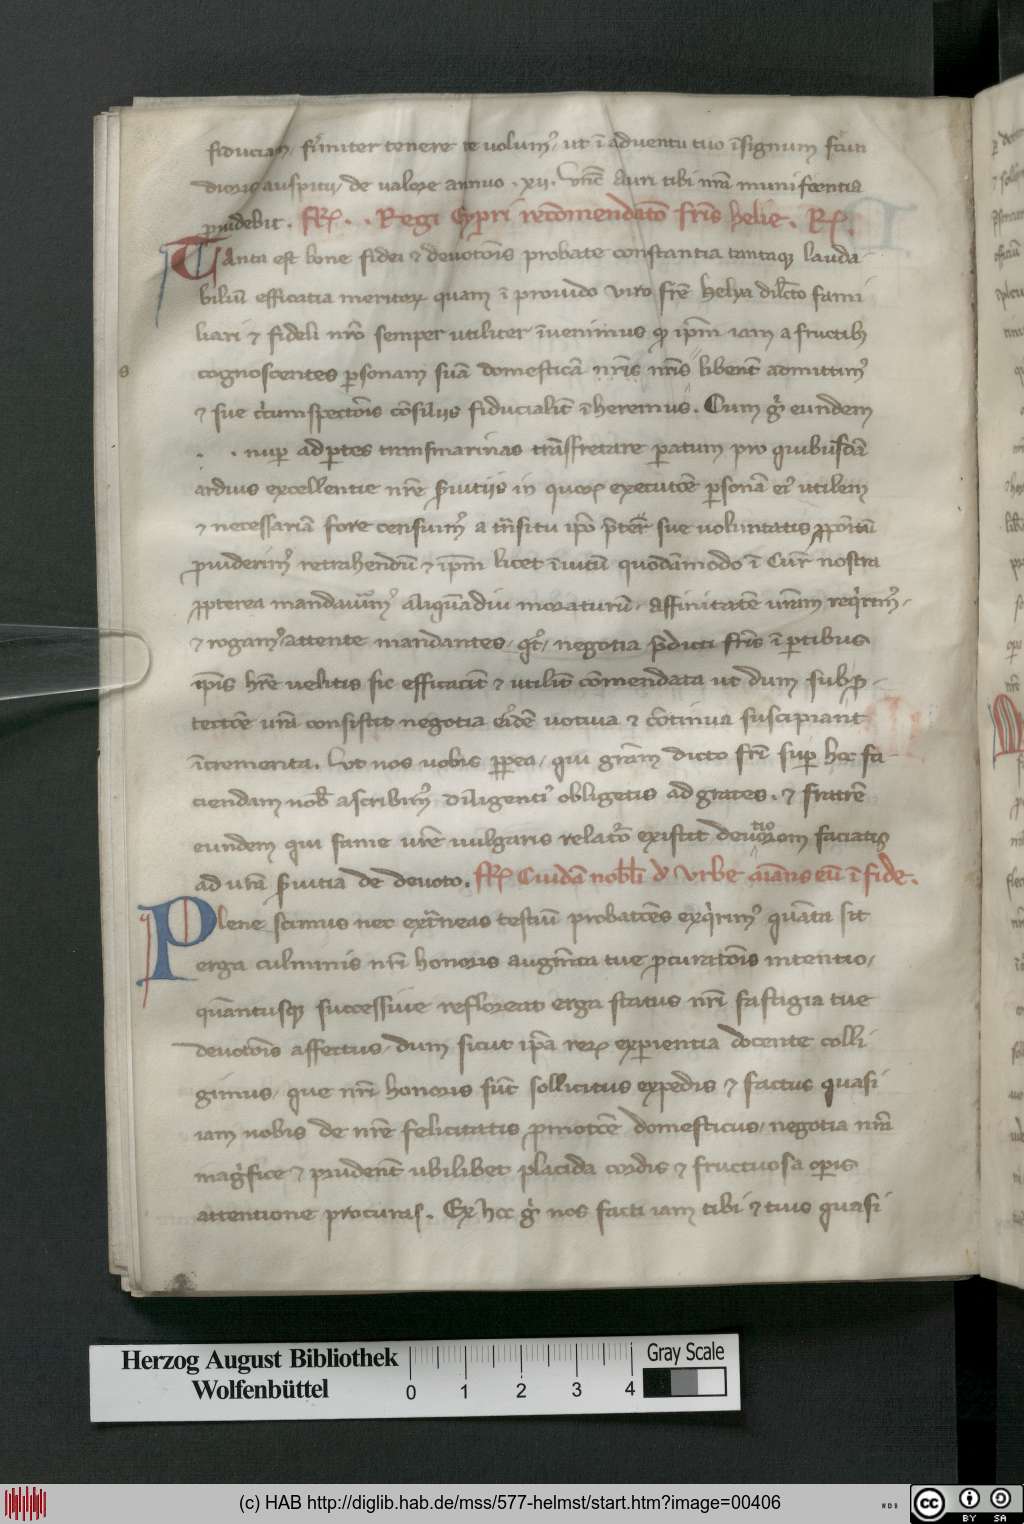 fiduciam, fir̄miter tenere te volum⁹, ut ī adventu tuo īsignum
auspitii, de valore annuo . xii . Unc̄ Auri tibi nr̄a munificentia
ꝓuidebit . Regi Cypri recōmendatō fr̄is helie . Rx.
Tanta est bone fidei ⁊ deuotōis probate constantia tantaqꝫ lauda
biliū efficatia meritoꝝ quam ī prouido viro fr̄e helya dilc̄to fami
liari ⁊ fideli nr̄o semper utiliter īuenimus ꝙ ip̄m iam a fructibꝫ
cognoscentes ꝑsonam suā domesticā nr̄is libent̄ admittim⁹
⁊ sue cͥcumspectōis cōsiliis fiducialit̄ īheremus . Cum gͥ eundem
. . nuꝑ ad ꝑtes transmarinas trāsfretare ꝑatum pro quibusdā
arduis excellentie nr̄e ẜuitiis in quoꝝ executōe ꝑsonā ei⁹ utilem
⁊ necessariā fore censuim⁹ a trāsitu ip̄o p̄ter sue voluntatis ꝓpōitū
ꝓuiderim⁹ retrahendū ⁊ ip̄m licet īuitū quodāmodo ī Cur̄ nostra
ꝓpterea mandauim⁹ aliquādiu moraturū . affinitatē vr̄am reqͥrim⁹,
⁊ rogam⁹ attente mandantes, negotia p̄dicti fr̄is ī ꝑtibus
ip̄is hr̄e velitis sic efficacit̄ ⁊ utilit̄ cōmendata ut dum sub ꝓ-
tectōe vr̄a consistūt negotia eidē votiua ⁊ cōtinua suscipiant
īcrementa . Ut nos vobis, qui gr̄am dicto fr̄i suꝑ hoc fa-
ciendam nob̄ ascribim⁹ diligenti⁹ obligetis ad grates . ⁊ fratrē
eundem qui fame vr̄e uulgaris relatō existit deuotiorem faciatis
ad vr̄a ẜuitia de deuoto . Cuidā nob̄li d̄ Urbe aīans eū ī fide .
Plene scimus nec ext̄neas testiū probatōes exqͥrim⁹ quāta sit
erga culminis nr̄i honoris augm̄ta tue ꝓcuratōis intentio,
quātusqꝫ successiue refloreat erga status nr̄i fastigia tue
deuotōis affectus, dum sicut ip̄a reꝝ exꝑientia docente colli
gimus, que nr̄i honoris sūt sollicitus expedis ⁊ factus quasi
iam nobis de nr̄e felicitatis ꝓmotōe domesticus, negotia nr̄a
magͥfice ⁊ prudent̄ ubilibet placida cordis ⁊ fructuosa oꝑis
attentione procuras . Ex hoc gͥ nos facti iam tibi ⁊ tuis quasi
Herzog August Bibliothek
Wolfenbüttel
0 1 2 3 4
Gray Scale
(c) HAB http://diglib.hab.de/mss/577-helmst/start.htm?image=00406
WDB
cc BY SA